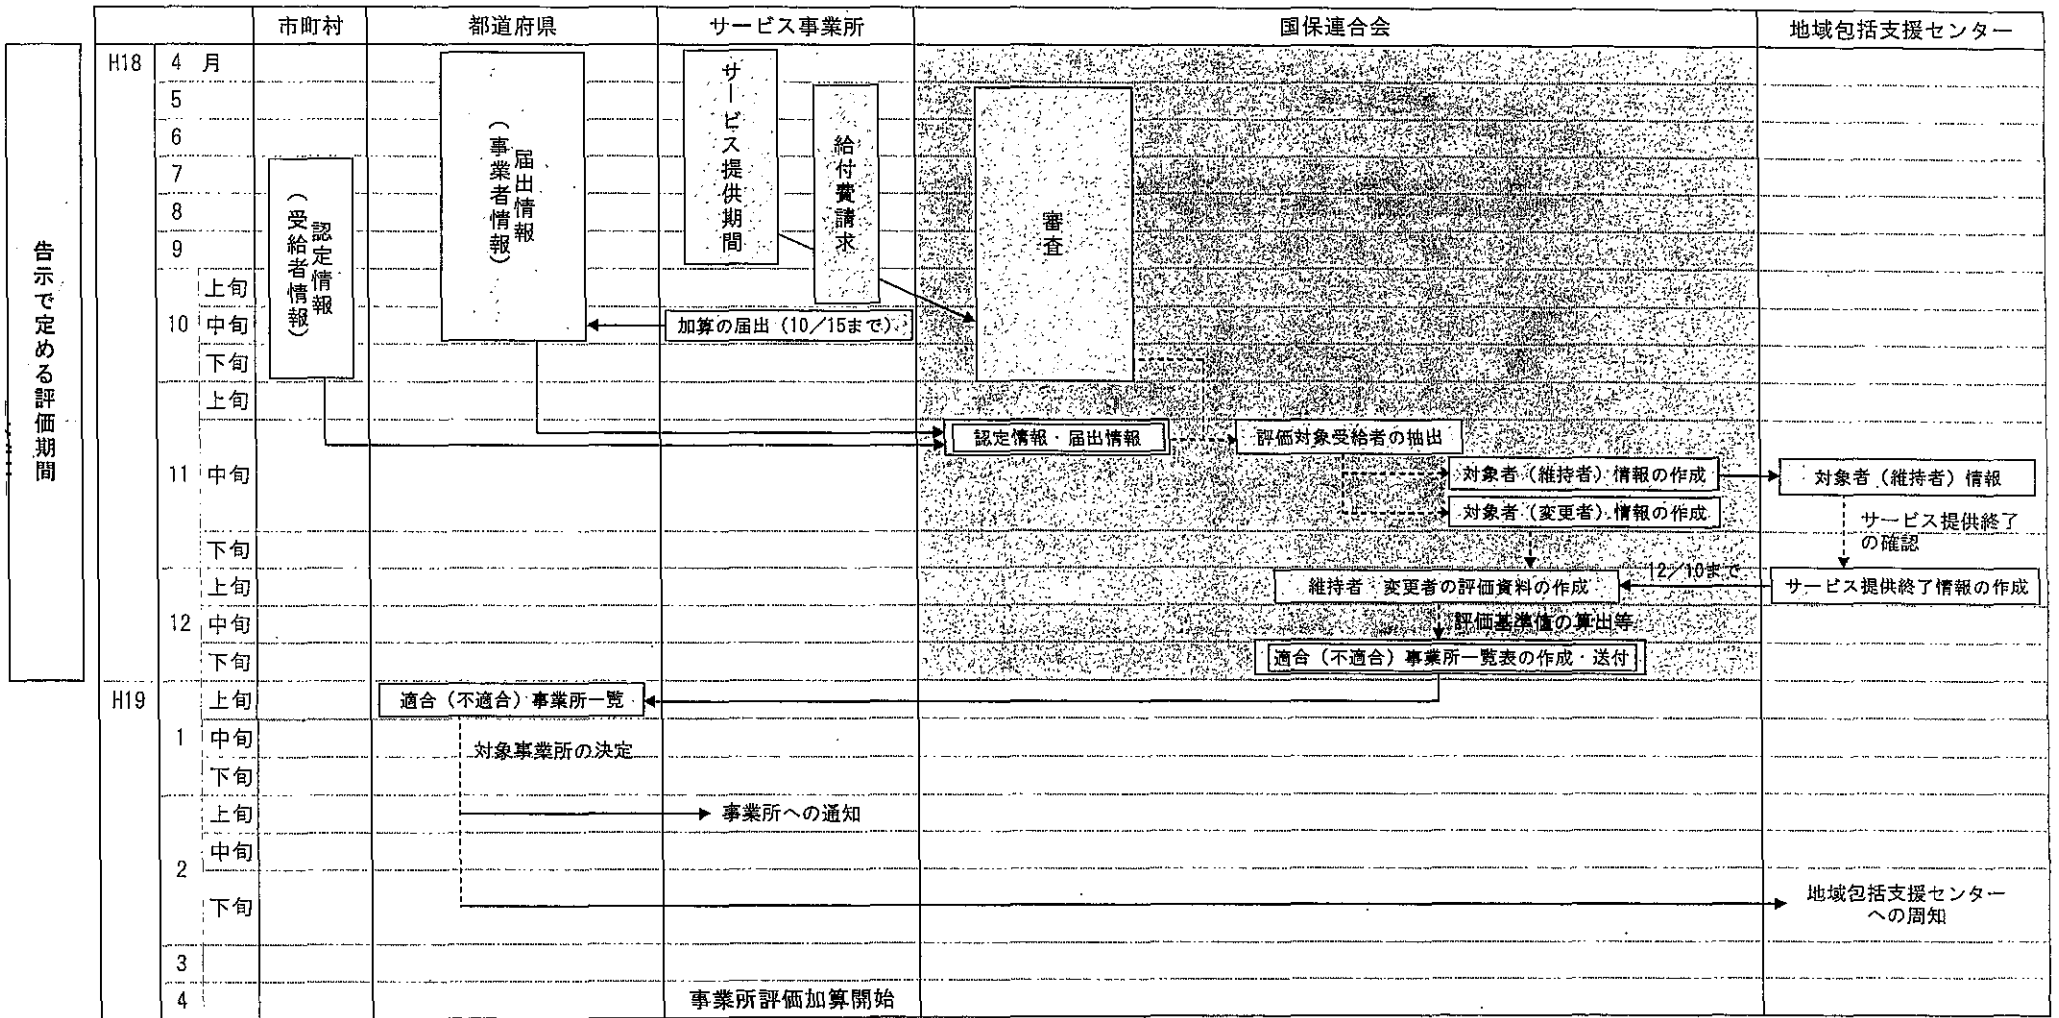 市町村
都道府県
サービス事業所
国保連合会
地域包括支援センター
告示で定める評価期間
H18
4 月
5
6
7
8
9
上旬
10 中旬
下旬
上旬
11 中旬
下旬
上旬
12 中旬
下旬
H19
上旬
1 中旬
下旬
上旬
中旬
2
下旬
3
4
認定情報
(受給者情報)
届出情報
(事業者情報)
サービス提供期間
給付費請求
審査
加算の届出(10/15まで)
認定情報・届出情報
評価対象受給者の抽出
対象者(維持者)情報の作成
対象者(維持者)情報
対象者(変更者)情報の作成
サービス提供終了
の確認
維持者・変更者の評価資料の作成
12/10まで
サービス提供終了情報の作成
評価基準値の算出等
適合(不適合)事業所一覧表の作成・送付
適合(不適合)事業所一覧
対象事業所の決定
事業所への通知
地域包括支援センター
への周知
事業所評価加算開始